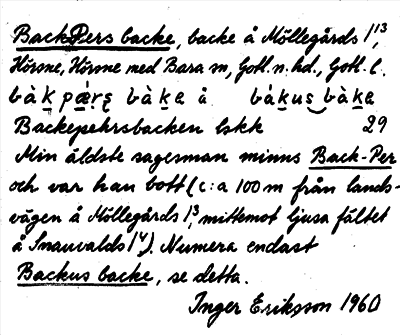 Back Pers backe, backe å Möllegårds 1¹³,
Hörsne, Hörsne med Bara sn, Gotl. n. hd., Gotl. l.
bàk pæ̀rs bàke å bákus‿bàke
Backepehrsbacken lskk 29
Min äldste sagesman minns Back-Per
och var han bott (c:a 100 m från lands-
vägen å Möllegårds 1³, mittemot ljusa fältet
å Snauvalds 1⁴). Numera endast
Backus backe, se detta.
Inger Eriksson 1960